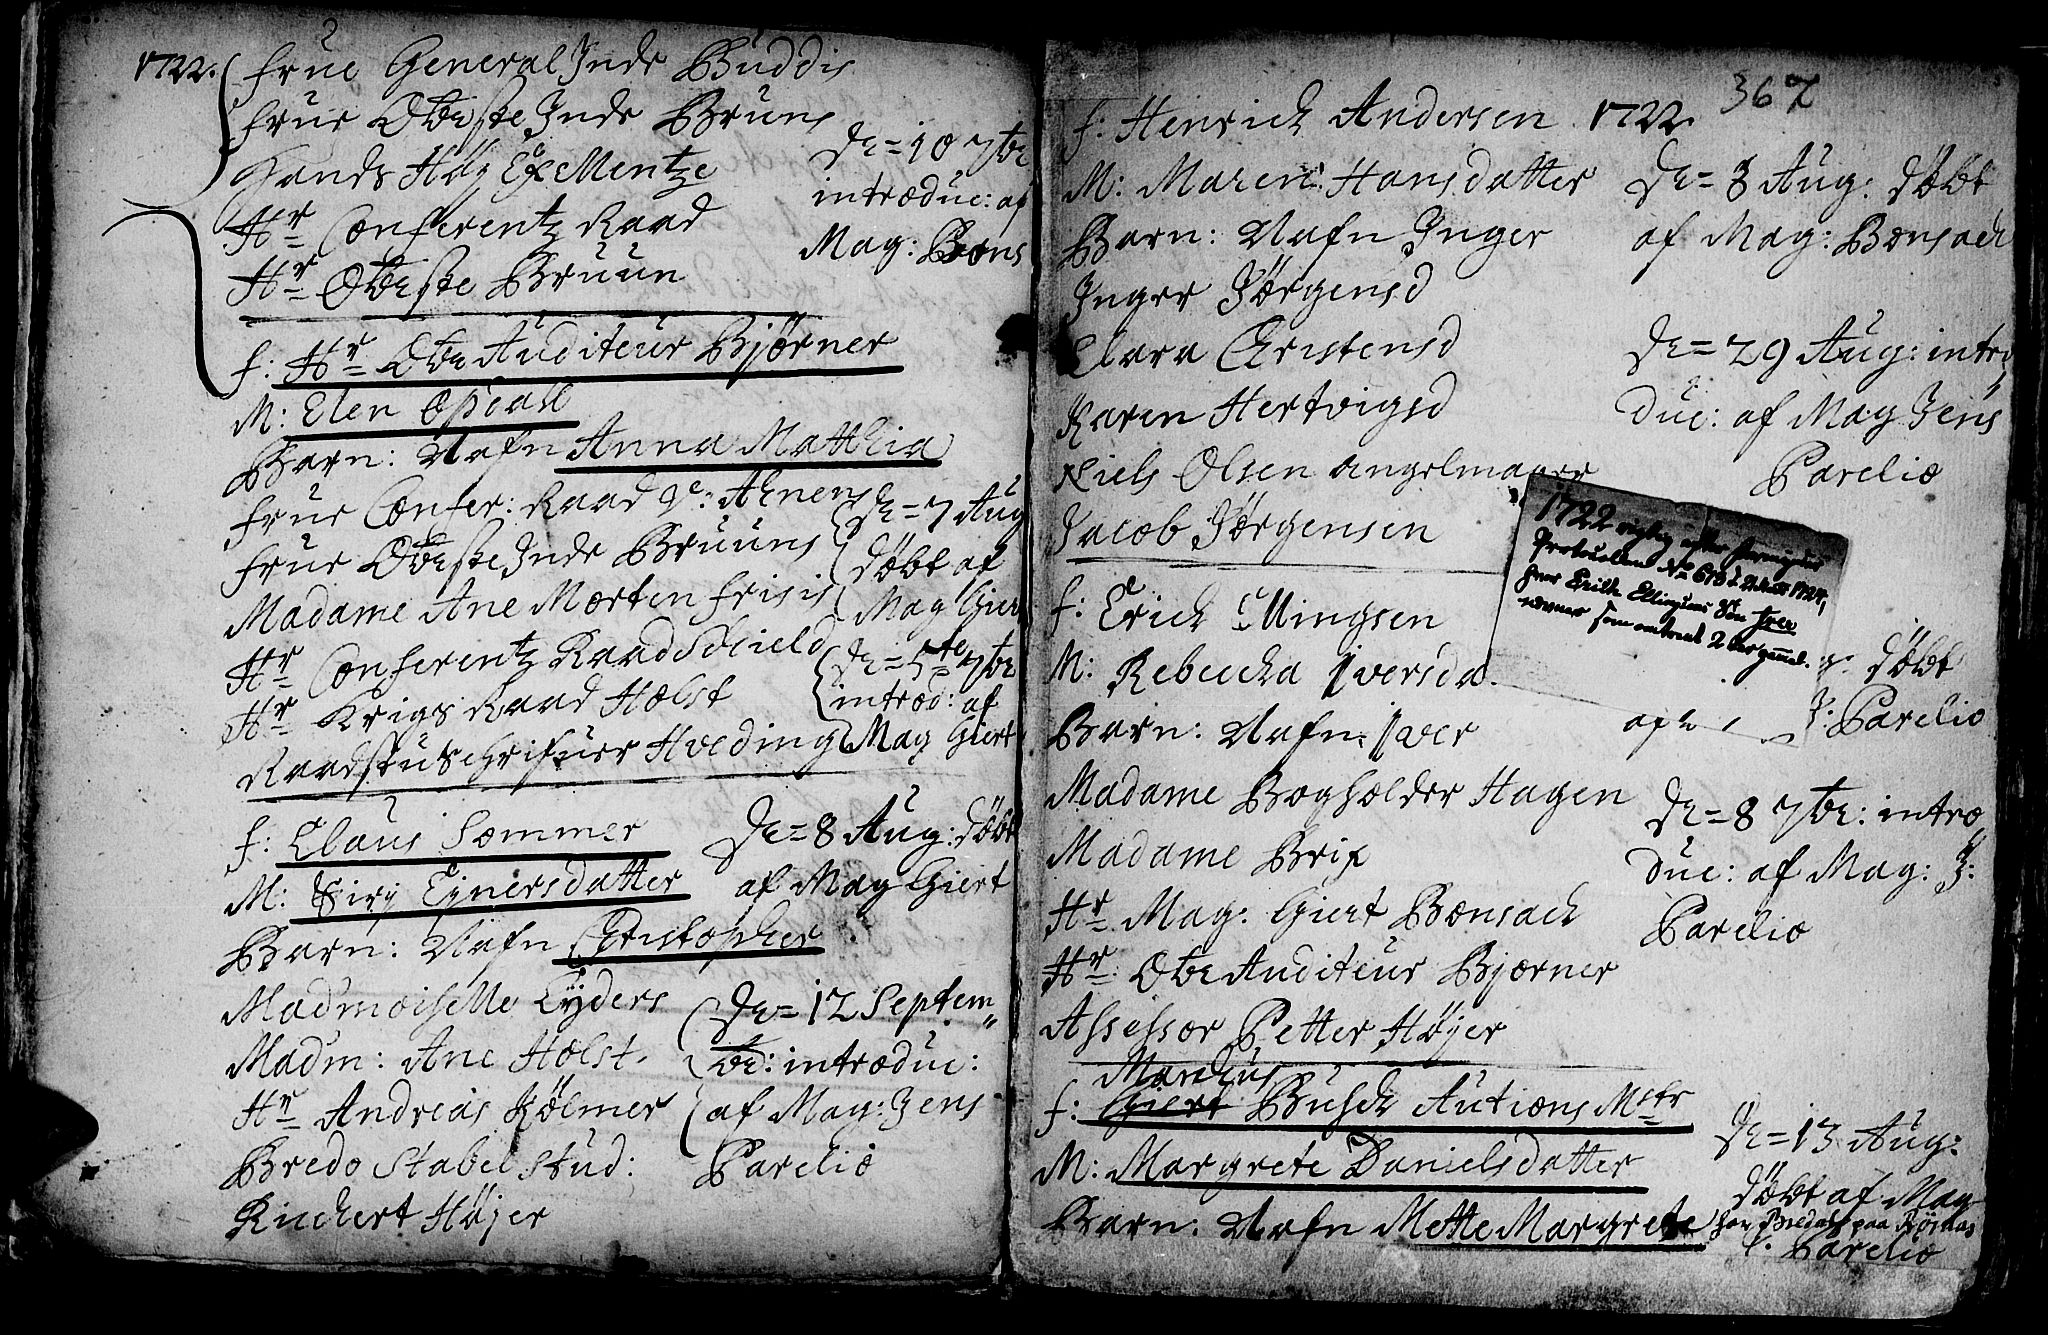 1722.
Frue General Inde Buddis
Frue Obe ste Inde Bruns
Hands Høy Ex Mentze
Hr Conferentz Raad
Hr Obe ste Bruun
De = 10 7be
introduc: af
Mag: Bons
f: Hr Obe Auditeur Bjørner
M: Elen Opdall
Barn: Nafn Anna Matthia
Frue Confer: Raad
Frue Obe ste Inde Bruuns
Madame Ane Morten Frisis
Hr Conferentz Raad Schield
Hr Krigs Raad Holst
Raadstu Schrifuer Hveding
De = 7 Aug
døbt af
Mag Giert
De = 5te 7be
introd: af
Mag Giert
f: Claus Sommer
M: Siry Ejnersdatter
Barn: Nafn Christopher
Madmoiselle Lyders
Madm: Ane Holst.
Hr Andreas Kølmer
Bredo Stabel Stud:
Richert Højer
De = 8 Aug: døbt
af Mag Giert
De = 12 Septem
be: introduc:
af Mag: Jens
Parelio
367
f: Henrich Andersen 1722.
M: Maren Hansdatter
Barn: Nafn Inger
Inger Jørgensd
Clara Christensd
Karen Hertvigsd
Niels Olsen Angelmager
Jacob Jørgensen
De = 3 Aug: døbt
af Mag: Bonsach
De = 29 Aug: intro
duc: af Mag Jens
Parelio
1722 rigtig efter
Protocolen No 678 1724,
hvor Erich Ellingsens Søn Iver
nevnes som omtrent 2 Aar gammel.
f: Erich Ellingsen
M: Rebecka Iversda
Barn: Nafn Iver
Madame Bogholder Hagen
Madame Brix
Hr Mag: Giert Bonsach
Hr Obe Auditeur Bjørner
Assessor Petter Højer
g: døbt
af
J: Parelio
De = 8 7be: intro
duc: af Mag: J:
Parelio
Marchus
f: Giert Busch Autions Mstr
M: Margrete Danielsdatter
Barn: Nafn Mette Margrete
De = 13 Aug:
døbt af Mag
for Bredahl paa Røsnas
J: Parelio